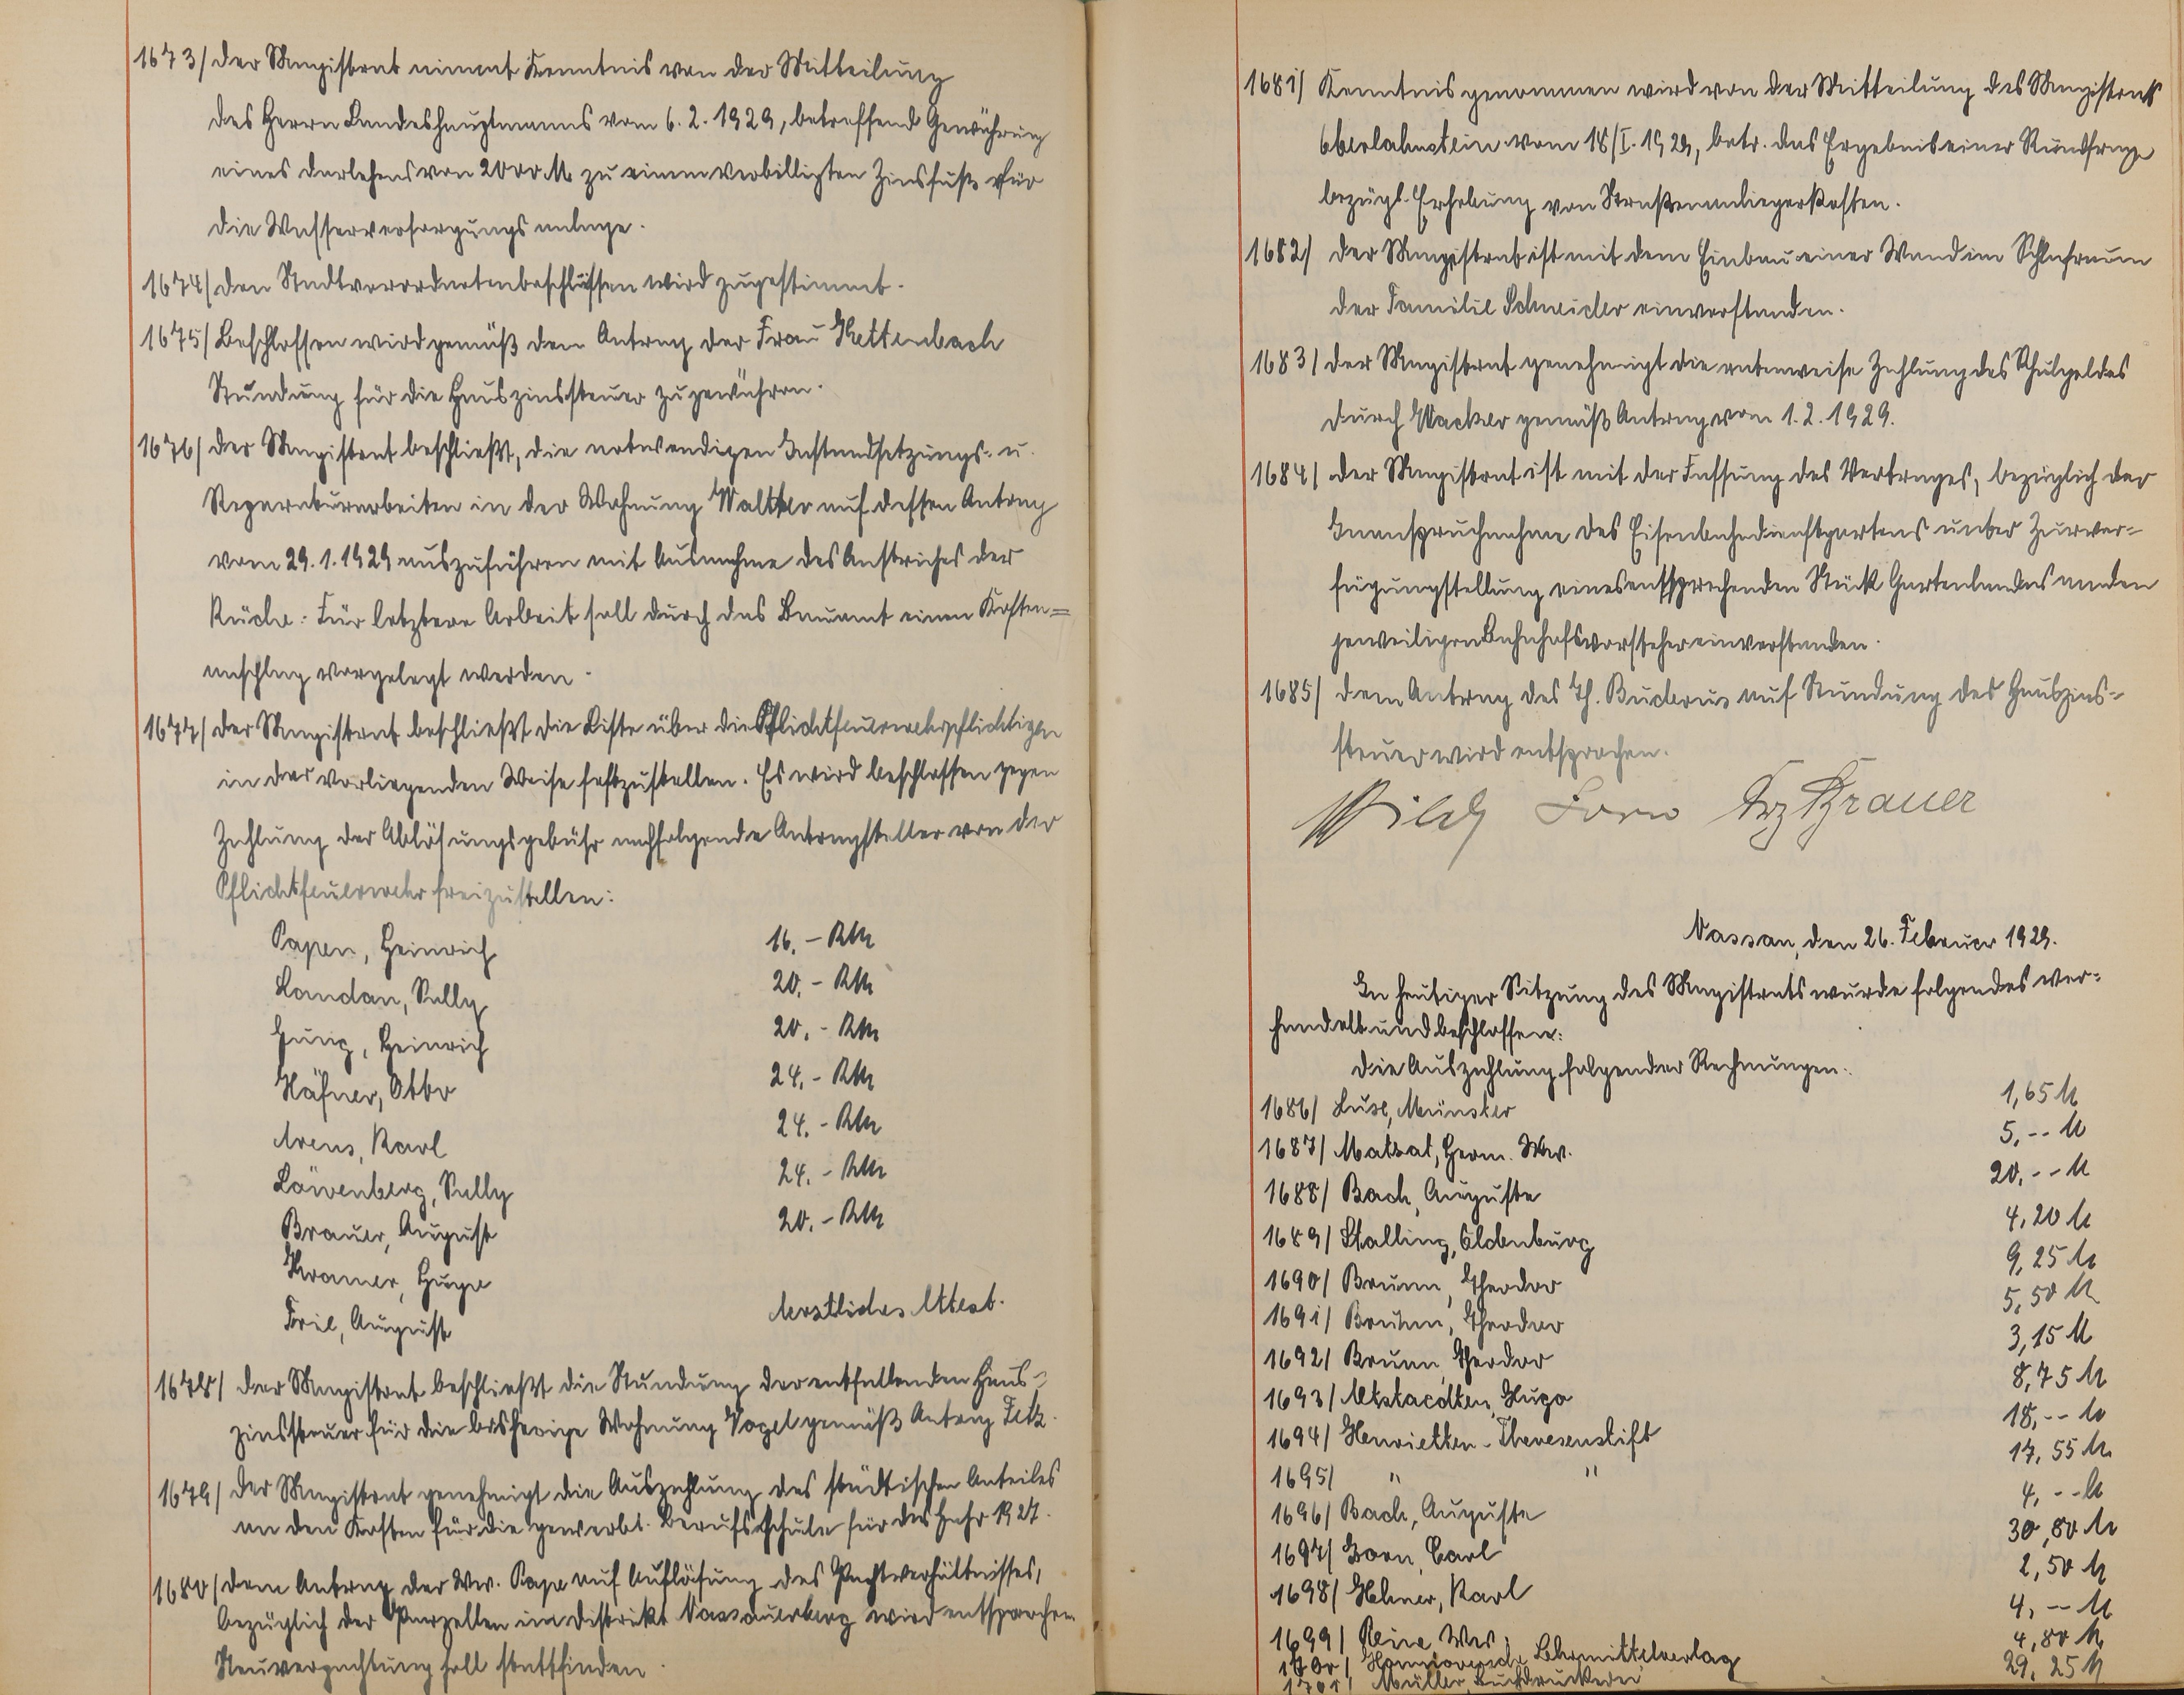 1673/ Der Magistrat nimmt Kenntnis von der Mitteilung
des Herrn Landeshauptmanns vom 6.2.1929, betreffend Gewährung
eines Darlehens von 2000 M zu einem verbilligten Zinsfuß für
die Wasserversorgungsanlage.
1674/ Den Stadtverordnetenbeschlüssen wird zugestimmt.
1675/ Beschlossen wird gemäß dem Antrag der Frau Hettenbach
Stundung für die Hauszinssteuer zu gewähren.
1676/ Der Magistrat beschließt, die notwendigen Instandsetzungs- u.
Reparaturarbeiten in der Wohnung Walther auf dessen Antrag
vom 29.1.1929 auszuführen mit Ausnahme des Anstriches der
Küche. Für letztere Arbeit soll durch das Bauamt einen Kosten=
anschlag vorgelegt werden.
1677/ Der Magistrat beschließt die Liste über die Pflichtfeuerwehrpflichtigen
in der vorliegenden Weise festzustellen. Es wird beschlossen gegen
Zahlung der Ablösungsgebühr nachfolgende Antragsteller von der
Pflichtfeuerwehr freizustellen:
Papen, Heinrich 16.- RM
Landau, Sally 20.- RM
Jung, Heinrich 20.- RM
Häfner, Otto 24.- RM
Arens, Karl 24.- RM
Löwenberg, Sally 24.- RM
Brauer, August 20.- RM
Kramer, Hugo
Friel, August Aerztliches Attest.
1678/ Der Magistrat beschließt die Stundung der entfallenden Haus-
zinssteuer für die bisherige Wohnung Vogel gemäß Antrag Fetz.
1679/ Der Magistrat genehmigt die Auszahlung des städtischen Anteiles
an den Kosten für die gewerbl. Berufsschule für das Jahr 1927.
1680/ Dem Antrag der Ww. Pape auf Auflösung des Pachtverhältnisses,
bezüglich der Parzellen im Distrikt Nassauerberg wird entsprochen.
Neuverpachtung soll stattfinden.
1681/ Kenntnis genommen wird von der Mitteilung des Magistrats
Oberlahnstein vom 18/I.1929, betr. das Ergebnis einer Rundfrage
bezügl. Erhebung von Straßenanliegerkosten.
1682/ Der Magistrat ist mit dem Einbau einer Wand im Schlafraum
der Familie Schneider einverstanden.
1683/ Der Magistrat genehmigt die ratenweise Zahlung des Schulgeldes
durch Wacker gemäß Antrag vom 1.2.1929.
1684/ Der Magistrat ist mit der Fassung des Vertrages, bezüglich der
Inanspruchnahme des Eisenbahndienstgartens unter Zurver-
fügungstellung eines entsprechenden Stück Gartenlandes an den
jeweiligen Bahnhofsvorsteher einverstanden.
1685/ Dem Antrag des Th. Buderus auf Stundung des Hauszins-
steuer wird entsprochen.
Brauer
Nassau, den 26. Februar 1929.
In heutiger Sitzung des Magistrats wurde folgendes ver-
handelt und beschlossen:
Die Auszahlung folgender Rechnungen.
1686/ Luse, Münster 1,65 M
1687/ Matzat, Herm. Ww. 5,-- M
1688/ Bach, Auguste 20,-- M
1689/ Stalling, Oldenburg 4,20 M
1690/ Bruun, Theodor 9,25 M
1691/ Bruun, Theodor 5,50 M
1692/ Bruun, Theodor 3,15 M
1693/ Hugo 8,75 M
1694/ Henrietten-Theresenstift 18,-- M
1695/ " " 17,55 M
1696/ Bach, Auguste 4,-- M
1697/ Born, Carl 30,80 M
1698/ Hehner, Karl 2,50 M
1699/ Reine Ww. 4,-- M
1700/ Hannoversche Lehrmittelverlag 4,80 M
1701/ Müller, Buchdruckerei 29,25 M